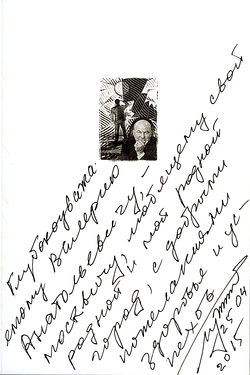 Глубокоуважа-
емому Валерию
Анатольевичу -
москвичу, любящему свой
родной и мой родной
город, с добрыми
пожеланиями
здоровья и ус-
пехов
25 04
2015